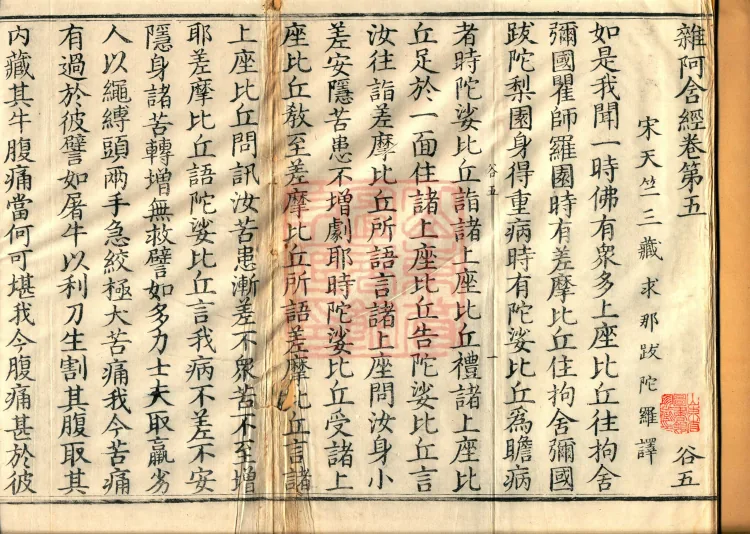 雜阿含經卷第五
谷五
宋天竺三藏求那跋陀羅譯
如是我聞一時佛有衆多上座比丘住拘舍
彌國瞿師羅園時有差摩比丘住拘舍彌國
跋陀梨園身得重病時有陀娑比丘為瞻病
谷五
一
者時陀娑比丘詣諸上座比丘禮諸上座比
丘足於一面住諸上座比丘告陀娑比丘言
汝往詣差摩比丘所語言諸上座問汝身小
差安隱苦患不增劇耶時陀娑比丘受諸上
座比丘教至差摩比丘所語差摩比丘言諸
上座比丘問訊汝苦患漸差不衆苦不至增
耶差摩比丘語陀娑比丘言我病不差不安
隱身諸苦轉增無救譬如多力士夫取羸劣
人以繩縛頭兩手急絞極大苦痛我今苦痛
有過於彼譬如屠牛以利刀生割其腹取其
内藏其牛腹痛當何可堪我今腹痛甚於彼